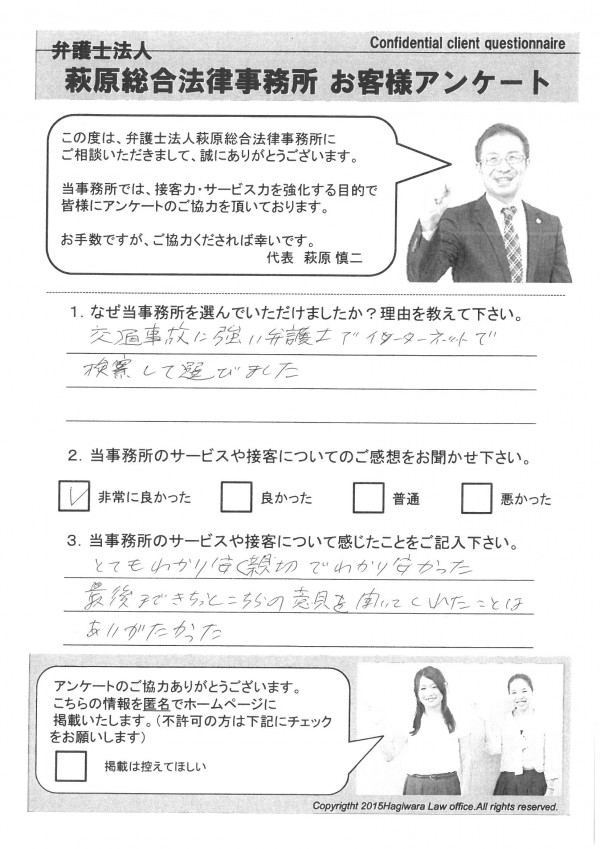 Confidential client questionnaire
弁護士法人
萩原総合法律事務所 お客様アンケート
この度は、弁護士法人萩原総合法律事務所に
ご相談いただきまして、誠にありがとうございます。
当事務所では、接客力・サービス力を強化する目的で
皆様にアンケートのご協力を頂いております。
お手数ですが、ご協力くだされば幸いです。
代表 萩原 慎二
1. なぜ当事務所を選んでいただけましたか？理由を教えて下さい。
交通事故に強い弁護士でインターネットで
検索して選びました
2. 当事務所のサービスや接客についてのご感想をお聞かせ下さい。
非常に良かった 良かった 普通 悪かった
3. 当事務所のサービスや接客について感じたことをご記入下さい。
とてもわかり安く親切でわかり安かった
最後まできちっとこちらの意見を聞いてくれたことは
ありがたかった
アンケートのご協力ありがとうございます。
こちらの情報を匿名でホームページに
掲載いたします。（不許可の方は下記にチェック
をお願いします）
掲載は控えてほしい
Copyrigtht 2015Hagiwara Law office.All rights reserved.